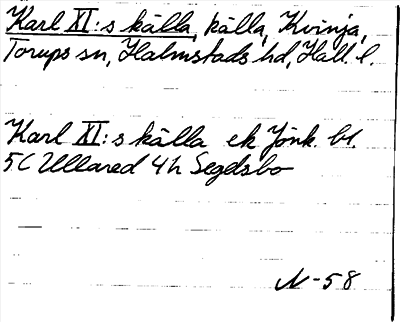 Karl XI:s källa, källa, Kvinja,
Torups sn, Halmstads hd, Hall. l.
Karl XI:s källa ek Jönk. bl.
5C Ullared 4h Segelsbo
N-58